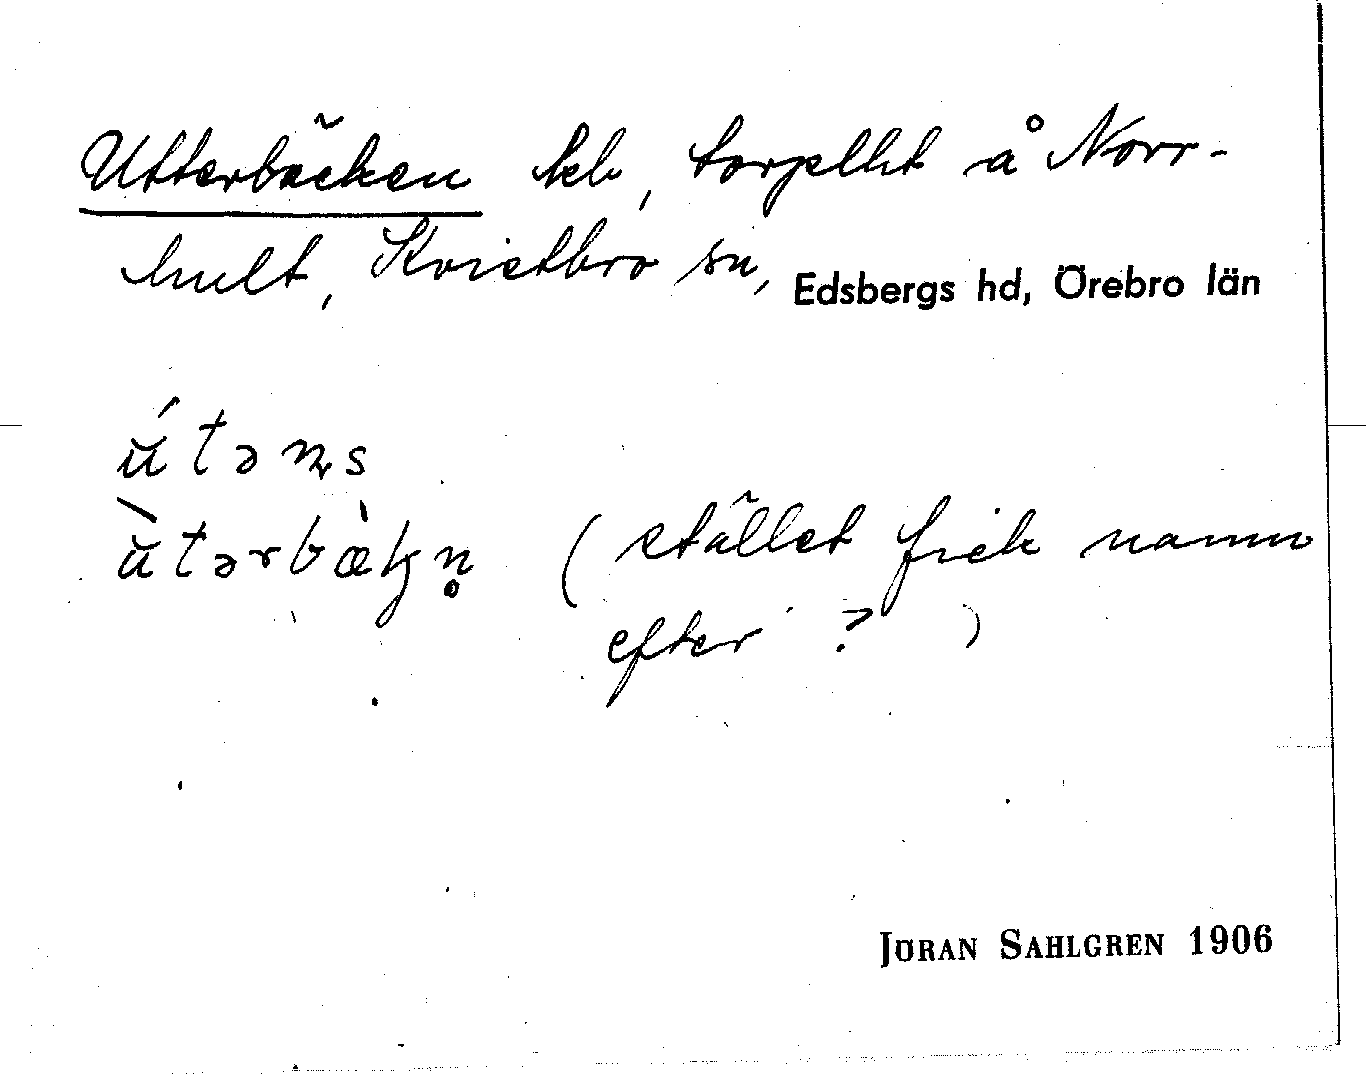 Utterbäcken tcb, torpllht å Norr-
hult, Kvistbro sn, Edsbergs hd, Örebro län
ú̆təṇs
ù̆tərbæ̀kn̥ (stället fick namn
efter ? )
JÖRAN SAHLGREN 1906